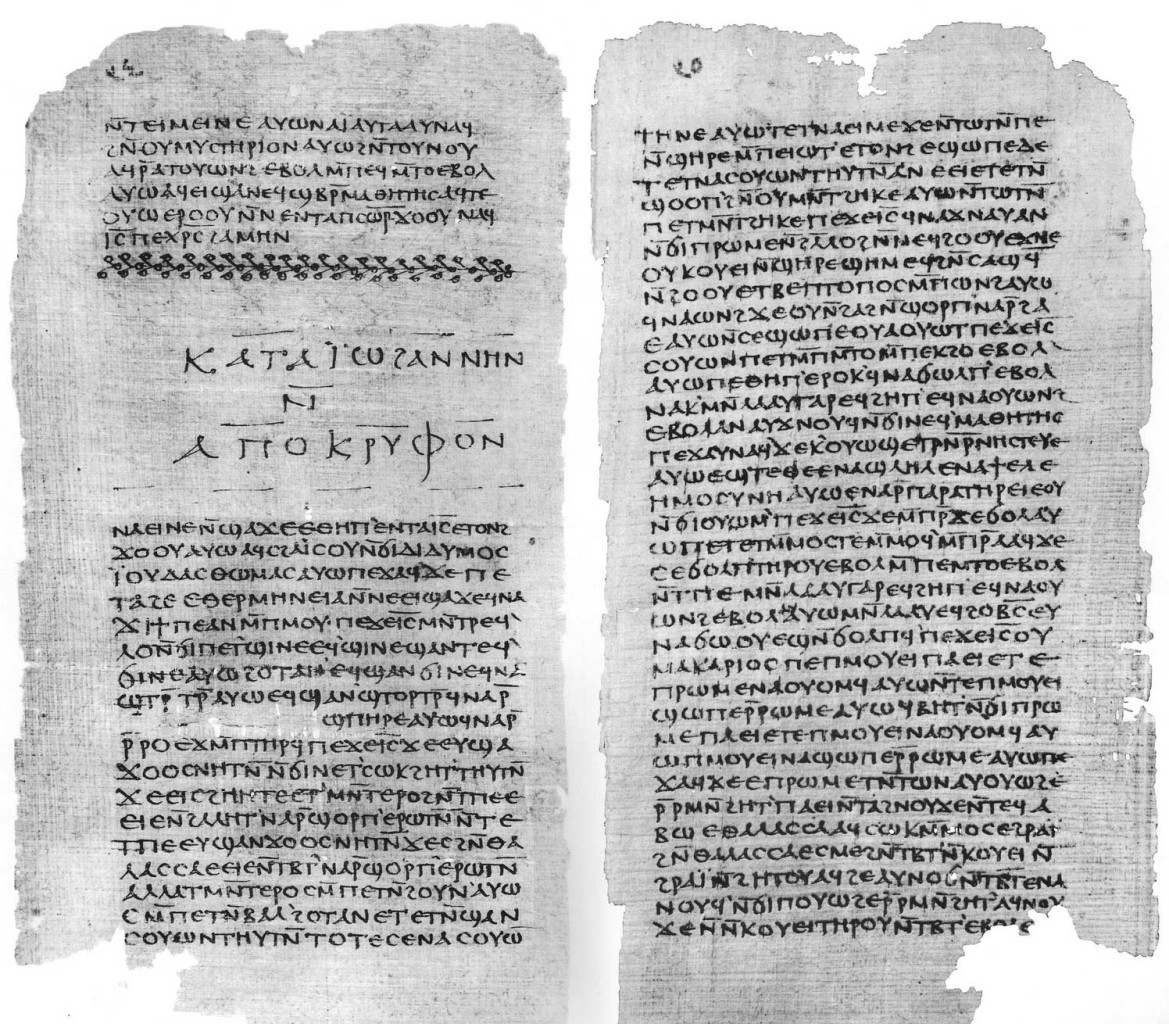 ⲛ̄ⲧⲉⲓⲙⲉⲓⲛⲉ ⲁⲩⲱ ⲛⲁⲓ̈ ⲁⲩⲧⲁⲁⲩ ⲛⲁϥ
ϩⲛ̄ⲟⲩⲙⲩⲥⲧⲏⲣⲓⲟⲛ ⲁⲩⲱ ϩⲛ̄ⲧⲟⲩⲛⲟⲩ
ⲁϥⲣ̄ⲁⲧⲟⲩⲱⲛϩ ⲉⲃⲟⲗ ⲙ̄ⲡⲉϥⲙ̄ⲧⲟ ⲉⲃⲟⲗ
ⲁⲩⲱ ⲁϥⲉⲓ ϣⲁⲛⲉϥϣⲃⲣ̄ⲙⲁⲑⲏⲧⲏⲥ ⲁϥⲧⲉ
ⲟⲩⲱ ⲉⲣⲟⲟⲩ ⲛ̄ⲛⲉⲛⲧⲁⲡⲥⲱⲣ̄ ϫⲟⲟⲩ ⲛⲁϥ
ⲓ̅ⲥ̅ ⲡⲉⲭⲣ̅ⲥ̅ ϩⲁⲙⲏⲛ
ⲕⲁⲧⲁ ⲓ̈ⲱϩⲁⲛⲛⲏⲛ
ⲛ̄
ⲁⲡⲟⲕⲣⲩⲫⲟⲛ
ⲛⲁⲉⲓ ⲛⲉ ⲛ̄ϣⲁϫⲉ ⲉⲑⲏⲡ ⲉⲛⲧⲁⲓ̅ⲥ̅ ⲉⲧⲟⲛϩ
ϫⲟⲟⲩ ⲁⲩⲱ ⲁϥⲥϩⲁⲓ̈ⲥⲟⲩ ⲛ̄ϭⲓ ⲇⲓⲇⲩⲙⲟⲥ
ⲓ̈ⲟⲩⲇⲁⲥ ⲑⲱⲙⲁⲥ ⲁⲩⲱ ⲡⲉϫⲁϥ ϫⲉ ⲡⲉ
ⲧⲁϩⲉ ⲉⲑⲉⲣⲙⲏⲛⲉⲓⲁ ⲛ̄ⲛⲉⲉⲓϣⲁϫⲉ ϥⲛⲁ
ϫⲓϯⲡⲉ ⲁⲛ ⲙ̄ⲡⲙⲟⲩ ⲡⲉϫⲉⲓ̅ⲥ̅ ⲙⲛ̄ⲧⲣⲉϥ
ⲗⲟ ⲛ̄ϭⲓ ⲡⲉⲧϣⲓⲛⲉ ⲉϥϣⲓⲛⲉ ϣⲁⲛⲧⲉϥ
ϭⲓⲛⲉ ⲁⲩⲱ ϩⲟⲧⲁⲛ ⲉϥϣⲁⲛϭⲓⲛⲉ ϥⲛⲁ
ϣⲧⲣ̄ⲧⲣ̄ ⲁⲩⲱ ⲉϥϣⲁⲛϣⲧⲟⲣⲧⲣ̄ ϥⲛⲁⲣ̄
ϣⲡⲏⲣⲉ ⲁⲩⲱ ϥⲛⲁⲣ̄
ⲣ̄ⲣⲟ ⲉϫⲙ̄ⲡⲧⲏⲣϥ ⲡⲉϫⲉⲓ̅ⲥ̅ ϫⲉ ⲉⲩϣⲁ
ϫⲟⲟⲥ ⲛⲏⲧⲛ̄ ⲛ̄ϭⲓ ⲛⲉⲧⲥⲱⲕ ϩⲏⲧⲧⲏⲩⲧⲛ̄
ϫⲉ ⲉⲓⲥϩⲏⲏⲧⲉ ⲉⲧⲙⲛ̄ⲧⲉⲣⲟ ϩⲛ̄ⲧⲡⲉ ⲉ
ⲉⲓⲉ ⲛ̄ϩⲁⲗⲏⲧ ⲛⲁⲣ̄ϣⲟⲣⲡ ⲉⲣⲱⲧⲛ̄ ⲛ̄ⲧⲉ
ⲧⲡⲉ ⲉⲩϣⲁⲛϫⲟⲟⲥ ⲛⲏⲧⲛ̄ ϫⲉ ⲥϩⲛ̄ⲑⲁ
ⲗⲁⲥⲥⲁ ⲉⲉⲓⲉ ⲛ̄ⲧⲃⲧ ⲛⲁⲣ̄ϣⲟⲣⲡ ⲉⲣⲱⲧⲛ̄
ⲁⲗⲗⲁ ⲧⲙⲛ̄ⲧⲉⲣⲟ ⲥⲙ̄ⲡⲉⲧⲛ̄ϩⲟⲩⲛ ⲁⲩⲱ
ⲥⲙ̄ⲡⲉⲧⲛ̄ⲃⲁⲗ ϩⲟⲧⲁⲛ ⲉⲧⲉⲧⲛ̄ϣⲁⲛ
ⲥⲟⲩⲱⲛⲧⲏⲩⲧⲛ̄ ⲧⲟⲧⲉ ⲥⲉⲛⲁⲥⲟⲩⲱ
ⲧⲏⲛⲉ ⲁⲩⲱ ⲧⲉⲧⲛⲁⲉⲓⲙⲉ ϫⲉ ⲛ̄ⲧⲱⲧⲛ̄ ⲡⲉ
ⲛ̄ϣⲏⲣⲉ ⲙ̄ⲡⲉⲓⲱⲧ ⲉⲧⲟⲛϩ ⲉϣⲱⲡⲉ ⲇⲉ
ⲧⲉⲧⲛⲁⲥⲟⲩⲱⲛⲧⲏⲩⲧⲛ̄ ⲁⲛ ⲉⲉⲓⲉ ⲧⲉⲧⲛ̄
ϣⲟⲟⲡ ϩⲛ̄ⲟⲩⲙⲛ̄ⲧϩⲏⲕⲉ ⲁⲩⲱ ⲛ̄ⲧⲱⲧⲛ̄
ⲡⲉ ⲧⲙⲛ̄ⲧϩⲏⲕⲉ ⲡⲉϫⲉⲓ̅ⲥ̅ ϥⲛⲁϫⲛⲁⲩ ⲁⲛ
ⲛ̄ϭⲓ ⲡⲣⲱⲙⲉ ⲛ̄ϩⲗ̄ⲗⲟ ϩⲛ̄ⲛⲉϥϩⲟⲟⲩ ⲉϫⲛⲉ
ⲟⲩⲕⲟⲩⲉⲓ ⲛ̄ϣⲏⲣⲉ ϣⲏⲙ ⲉϥϩⲛ̄ⲥⲁϣϥ
ⲛ̄ϩⲟⲟⲩ ⲉⲧⲃⲉ ⲡⲧⲟⲡⲟⲥ ⲙ̄ⲡⲱⲛϩ ⲁⲩⲱ
ϥⲛⲁⲱⲛϩ ϫⲉ ⲟⲩⲛ̄ϩⲁϩ ⲛ̄ϣⲟⲣⲡ ⲛⲁⲣ̄ϩⲁ
ⲉ ⲁⲩⲱ ⲛ̄ⲥⲉϣⲱⲡⲉ ⲟⲩⲁ ⲟⲩⲱⲧ ⲡⲉϫⲉⲓ̅ⲥ̅
ⲥⲟⲩⲱⲛ ⲡⲉⲧⲙ̄ⲡⲙ̄ⲧⲟ ⲙ̄ⲡⲉⲕϩⲟ ⲉⲃⲟⲗ
ⲁⲩⲱ ⲡⲉⲑⲏⲡ ⲉⲣⲟⲕ ϥⲛⲁϭⲱⲗⲡ ⲉⲃⲟⲗ
ⲛⲁⲕ ⲙⲛ̄ⲗⲁⲁⲩ ⲅⲁⲣ ⲉϥϩⲏⲡ ⲉϥⲛⲁⲟⲩⲱⲛϩ
ⲉⲃⲟⲗ ⲁⲛ ⲁⲩϫⲛⲟⲩϥ ⲛ̄ϭⲓ ⲛⲉϥⲙⲁⲑⲏⲧⲏⲥ
ⲡⲉϫⲁⲩ ⲛⲁϥ ϫⲉ ⲕⲟⲩⲱϣ ⲉⲧⲣⲛ̄ⲣ̄ⲛⲏⲥⲧⲉⲩⲉ
ⲁⲩⲱ ⲉϣ ⲧⲉ ⲑⲉ ⲉⲛⲁϣⲗⲏⲗ ⲉⲛⲁϯ ⲉⲗⲉ
ⲏⲙⲟⲥⲩⲛⲏ ⲁⲩⲱ ⲉⲛⲁⲣ̄ⲡⲁⲣⲁⲧⲏⲣⲉⲓ ⲉⲟⲩ
ⲛ̄ϭⲓⲟⲩⲱⲙ ⲡⲉϫⲉⲓ̅ⲥ̅ ϫⲉ ⲙ̄ⲡⲣ̄ϫⲉ ϭⲟⲗ ⲁⲩ
ⲱ ⲡⲉⲧⲉⲧⲙ̄ⲙⲟⲥⲧⲉ ⲙ̄ⲙⲟϥ ⲙ̄ⲡⲣ̄ⲁⲁϥ ϫⲉ
ⲥⲉϭⲟⲗⲡ ⲧⲏⲣⲟⲩ ⲉⲃⲟⲗ ⲙ̄ⲡⲉⲙⲧⲟ ⲉⲃⲟⲗ
ⲛ̄ⲧⲡⲉ ⲙⲛ̄ⲗⲁⲁⲩ ⲅⲁⲣ ⲉϥϩⲏⲡ ⲉϥⲛⲁⲟⲩ
ⲱⲛϩ ⲉⲃⲟⲗ ⲁⲛ ⲁⲩⲱ ⲙⲛ̄ⲗⲁⲁⲩ ⲉϥϩⲟⲃ̄ⲥ̄ ⲉⲩ
ⲛⲁϭⲱ ⲟⲩⲉϣⲛ̄ϭⲟⲗⲡϥ ⲡⲉϫⲉⲓ̅ⲥ̅ ⲟⲩ
ⲙⲁⲕⲁⲣⲓⲟⲥ ⲡⲉ ⲡⲙⲟⲩⲉⲓ ⲡⲁⲉⲓ ⲉⲧⲉ
ⲡⲣⲱⲙⲉ ⲛⲁⲟⲩⲟⲙϥ ⲁⲩⲱ ⲛ̄ⲧⲉⲡⲙⲟⲩⲉⲓ
ϣⲱⲡⲉ ⲣ̄ⲣⲱⲙⲉ ⲁⲩⲱ ϥⲃⲏⲧ ⲛ̄ϭⲓ ⲡⲣⲱ
ⲙⲉ ⲡⲁⲉⲓ ⲉⲧⲉ ⲡⲙⲟⲩⲉⲓ ⲛⲁⲟⲩⲟⲙϥ ⲁⲩ
ⲱ ⲡⲙⲟⲩⲉⲓ ⲛⲁϣⲱⲡⲉ ⲣ̄ⲣⲱⲙⲉ ⲁⲩⲱ ⲡⲉ
ϫⲁϥ ϫⲉ ⲉⲡⲣⲱⲙⲉ ⲧⲛ̄ⲧⲱⲛ ⲁⲩⲟⲩⲱϩⲉ
ⲣ̄ⲣⲙⲛ̄ϩⲏⲧ ⲡⲁⲉⲓ ⲛ̄ⲧⲁϩⲛⲟⲩϫⲉ ⲛ̄ⲧⲉϥⲁ
ⲃⲱ ⲉⲑⲁⲗⲁⲥⲥⲁ ⲁϥⲥⲱⲕ ⲙ̄ⲙⲟⲥ ⲉϩⲣⲁⲓ̈
ϩⲛ̄ⲑⲁⲗⲁⲥⲥⲁ ⲉⲥⲙⲉϩ ⲛ̄ⲧⲃⲧ ⲛ̄ⲕⲟⲩⲉⲓ ⲛ̄
ϩⲣⲁⲓ̈ ⲛ̄ϩⲏⲧⲟⲩ ⲁϥϩⲉ ⲁⲩⲛⲟϭ ⲛ̄ⲧⲃⲧ ⲉⲛⲁ
ⲛⲟⲩϥ ⲛ̄ϭⲓ ⲡⲟⲩⲱϩⲉ ⲣ̄ⲣⲙⲛ̄ϩⲏⲧ ⲁϥⲛⲟⲩ
ϫⲉ ⲛ̄ⲛⲕⲟⲩⲉⲓ ⲧⲏⲣⲟⲩ ⲛ̄ⲧⲃⲧ ⲉⲃⲟⲗ